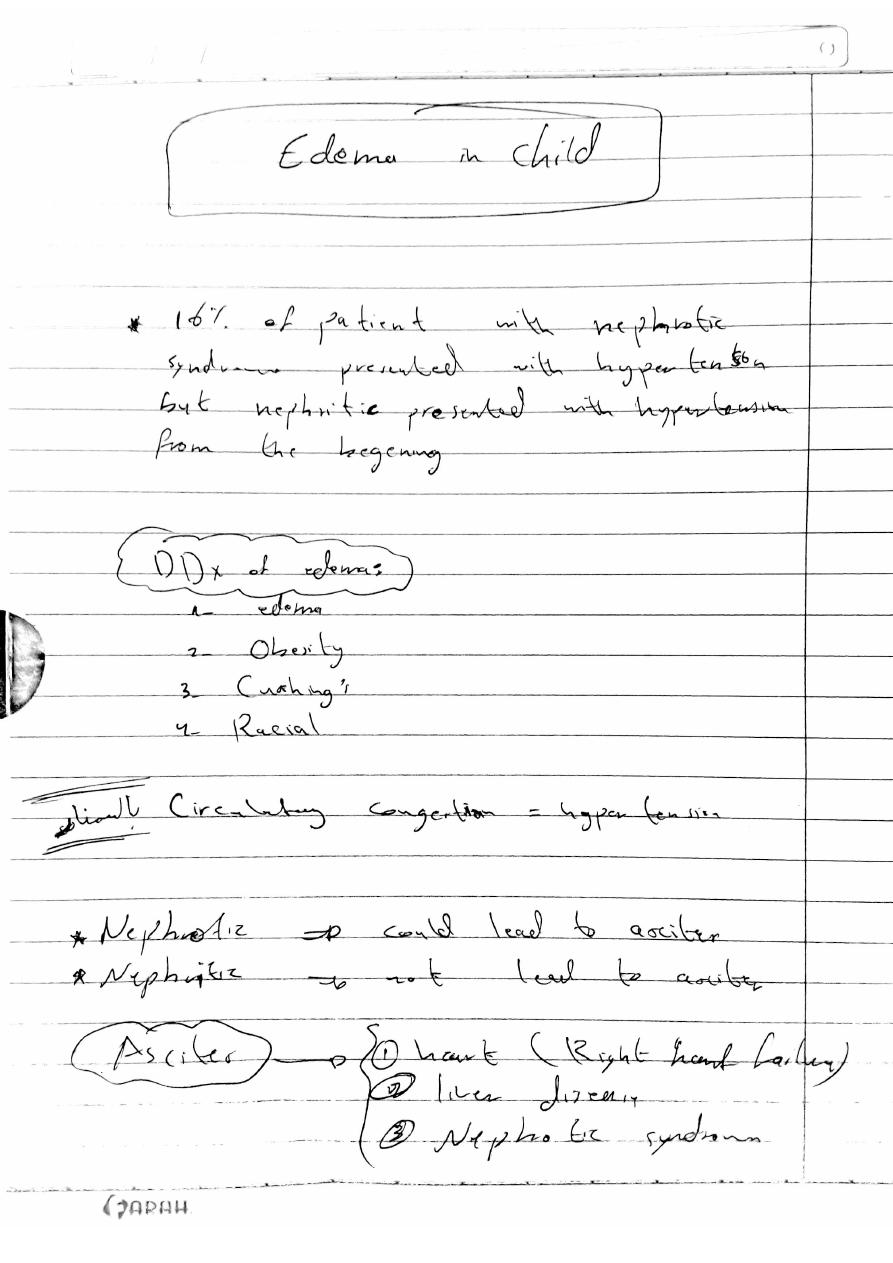 Edema in child
* 16% of patient with nephrotic
syndrome presented with hypertension
but nephritic presented with hypertension
from the begening
DDx of edema:
1- edema
2- Obesity
3- Cushing's
4- Racial
Circulatory congestion = hypertension
* Nephrotic ⇒ could lead to ascites
* Nephritic → not lead to ascites
Ascites → ① heart (Right heart failure)
② liver disease
③ Nephrotic syndrome
SARAH